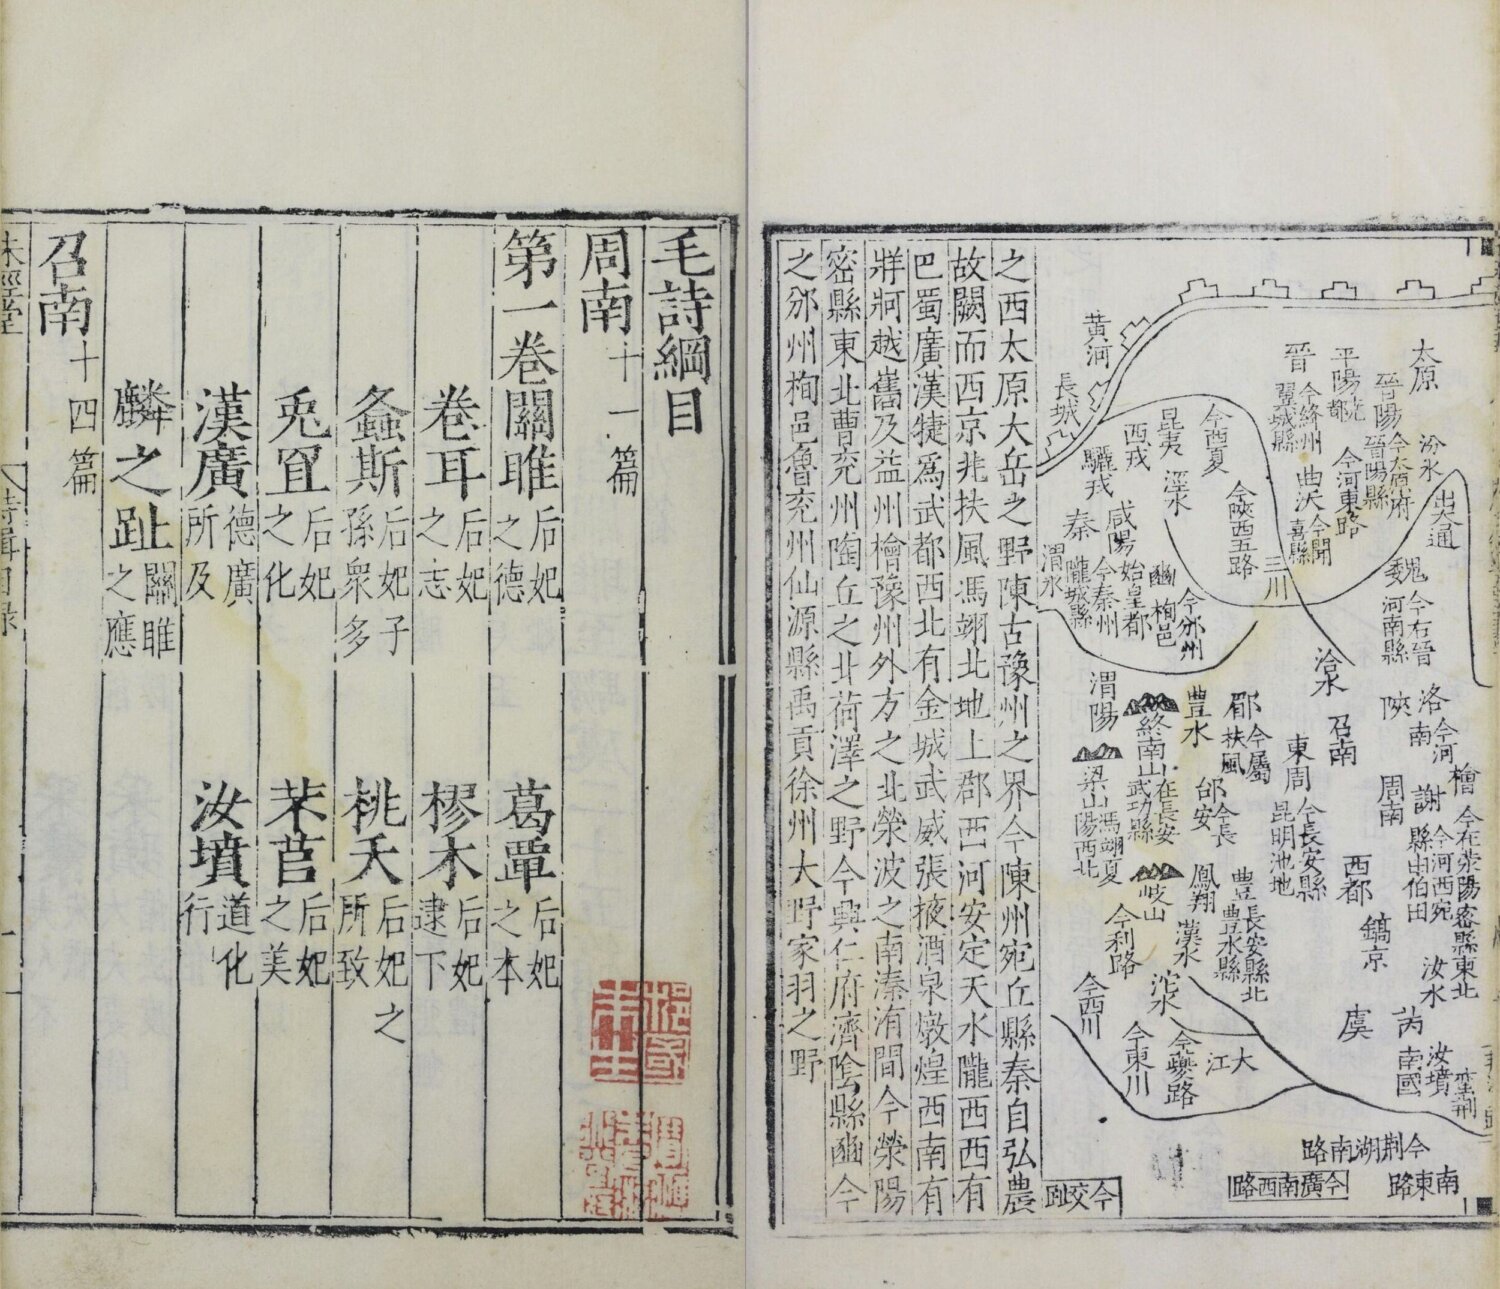 黃河
長城
太原
晉陽
今太原府
晉陽縣
汾水
出大通
平陽
堯都
今河東路
晉
今絳州
翼城縣
曲沃
今聞
喜縣
今西夏
今陝西五路
三川
昆夷
西戎
涇水
驪戎
咸陽
始皇都
秦
今秦州
隴城縣
渭水
豳
栒邑
今邠州
魏
今右晉
河南縣
洽水
洛
今河
南
陝
召南
周南
謝
今河西宛
縣申伯田
檜
今在滎陽密縣東北
東周
今長安縣
昆明池地
郿
今屬
扶風
豐水
終南山
在長安
武功縣
渭陽
梁山
馮翊夏
陽西北
岐山
鳳翔
漢水
今利路
今西川
沱水
今東川
今夔路
大江
豐
長安縣北
豐水縣
西都
鎬京
汝水
虞
芮
南國
汝墳
蠻荆
今荆湖南路
南東路
今廣南西路
今交趾
之西太原大岳之野陳古豫州之界今陳州宛丘縣秦自弘農
故闕而西京兆扶風馮翊北地上郡西河安定天水隴西西有
巴蜀廣漢犍爲武都西北有金城武威張掖酒泉燉煌西南有
牂牁越巂及益州檜豫州外方之北滎波之南溱洧間今滎陽
密縣東北曹兖州陶丘之北荷澤之野今興仁府濟陰縣豳今
之邠州栒邑魯兖州仙源縣禹貢徐州大野豕羽之野
毛詩綱目
周南十一篇
第一卷關雎后妃之德 葛覃后妃之本
卷耳后妃之志 樛木后妃逮下
螽斯后妃子孫衆多 桃夭后妃之所致
兎罝后妃之化 芣苢后妃之美
漢廣德廣所及 汝墳道化行
麟之趾關雎之應
召南十四篇
味經堂
詩緝目録
一